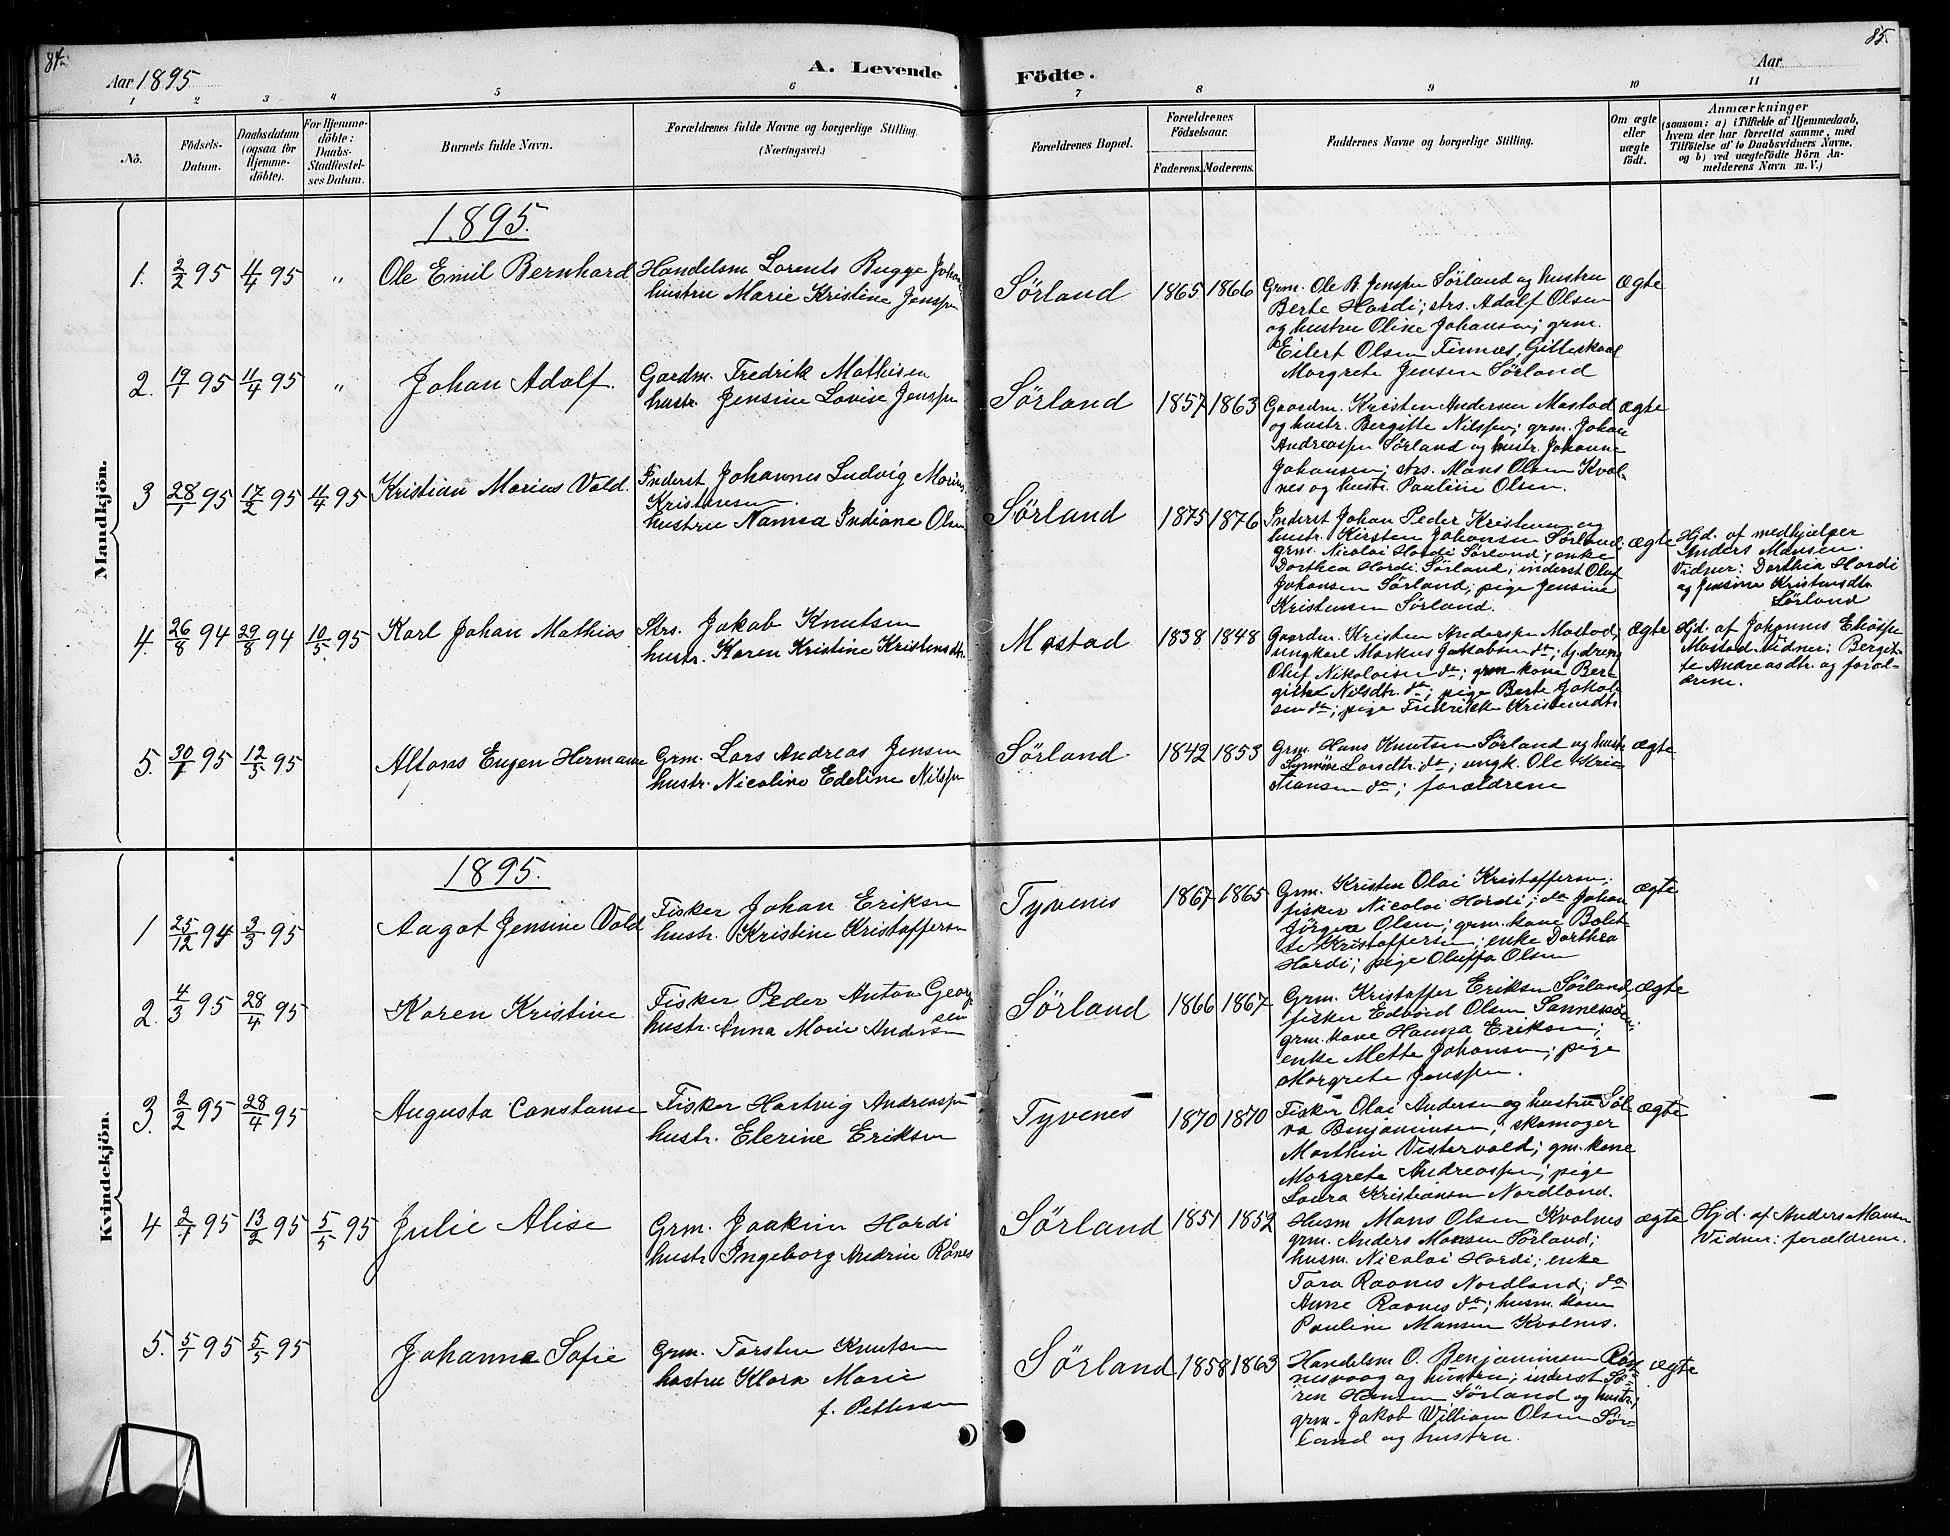 84.
85.
Aar 1895
A. Levende
Födte.
Aar
1 2 3 4 5 6 7 8 9 10 11
No.
Födsels-
Datum.
Daabsdatum
(ogsaa för
Hjemme-
döbte).
For Hjemme-
döbte:
Daabs-
Stadfæstel-
ses Datum.
Barnets fulde Navn.
Forældrenes fulde Navne og borgerlige Stilling.
(Næringsvei.)
Forældrenes Bopæl.
Forældrenes
Födselsaar.
Faderens. Moderens.
Faddernes Navne og borgerlige Stilling.
Om ægte
eller
uægte
födt.
Anmærkninger
(saasom: a) i Tilfælde af Hjemmedaab,
hvem der har forrettet samme, med
Tilföielse af to Daabsvidners Navne,
og b) ved uægtefödte Börn An-
melderens Navn m. V.)
Mandkjön.
1895.
1. 2/2 95 4/4 95 " Ole Emil Bernhard
Handelsm Lorents Bugge Johan
hustru Marie Kristine Jenssen
Sørland 1865 1866
Grm. Ole B. Jenssen Sørland og hustru
Berte Hardi; strs. Adolf Olsen
og hustru Oline Johansen; grm.
Eilert Olsen Finnæs, Gilleskaal
Margrete Jensen Sørland
Ægte
2. 19/1 95 11/4 95 " Johan Adolf.
Gardm. Fredrik Mathisen
hustr. Jensine Lovise Jenssen
Sørland 1857 1863
Gaardm. Kristen Andersen Mastad
og hustr. Bergitte Nilssen; grm. Johan
Andreassen Sørland og hustr. Johanne
Johansen; strs. Mans Olsen Kval-
nes og hustr. Pauline Olsen.
ægte
3 28/1 95 17/2 95 4/4 95 Kristian Marius Vald.
Inderst Johannes Ludvig Marius
Kristensen
hustru Namsa Indiane Olsen
Sørland 1875 1876
Inderst Johan Peder Kristensen og
hustr. Kirsten Johansen Sørland;
grm. Nicolai Hardi Sørland; enke
Dorthea Hardi Sørland; inderst Oluf
Johansen Sørland; pige Jensine
Kristensen Sørland.
ægte
Hjd. af medhjælper
Anders Mansen.
Vidner: Dorthea Hardi
og Jensine Kristensdtr.
Sørland
4. 26/8 94 29/8 94 10/5 95 Karl Johan Mathias
Strs. Jakob Knutsen
hustr. Karen Kristine Kristensdtr.
Mostad 1838 1848
Gaardm. Kristen Anderssen Mastad;
ungkarl Markus Jakobsen do; y. dreng
Oluf Nikolaisen do; grm. kone Ber-
gitte Nilsdtr. do; pige Berte Jakob-
sen do; pige Fredrikke Kristensdtr.
Ægte
Hjd. af Johannes
Mastad. Vidner: Bergit-
te Andreasdtr. og foræl-
drene.
5. 30/1 95 12/5 95 Alfons Eugen Hermann
Grm. Lars Andreas Jensen
hustr. Nicoline Edeline Nilssen
Sørland 1842 1853
Grm. Hans Knutsen Sørland og hustr.
Synnöve Larsdtr. do; ungk. Ole Kris-
tiansen do; forældrene
ægte
Kvindekjön.
1895.
1 25/12 94 3/3 95 Aagot Jensine Vald
Fisker Johan Eriksen
hustr. Kristine Kristoffersen
Tyvenes 1867 1865
Grm. Kristen Olai Kristoffersen;
fisker Nicolai Hardi; do Johan
Jörgen Olsen; grm. kone Bolet-
te Kristoffersen; enke Dorthea
Hardi; pige Oluffa Olsen
ægte
2. 4/3 95 28/4 95 Karen Kristine
Fisker Peder Anton Georg
sen
hustr. Anna Marie Andersen
Sørland 1866 1867
Grm. Kristoffer Eriksen Sørland,
fisker Edvard Olsen
grm. kone Hanna Eriksen;
enke Mette Johansen; pige
Margrete Jenssen.
ægte
3. 2/2 95 28/4 95 Augusta Constanse
Fisker Hartvig Andreassen
hustr. Elerine Eriksen
Tyvenes 1870 1870
Fisker Olai Andersen og hustru Søl-
va Benjaminsen; skomager
Marthin Vistervald; grm. kone
Margrete Andreassen; pige
Laura Kristiansen Nordland.
ægte
4 2/1 95 13/2 95 5/5 95 Julie Alise
Grm. Joakim Hardi
hustr Ingeborg Andrine Rånes
Sørland 1851 1852
Husm Mans Olsen Kvalnes
grm. Anders Mansen Sørland;
husm. Nicolai Hardi; enke
Tara Raanes Nordland; do
Anne Raanes do; husm. kone
Pauline Mansen Kvalnes.
ægte
Hjd. af Anders Mansen
Vidner: forældrene.
5. 5/1 95 5/5 95 Johanne Sofie
Grm. Torsten Knutsen
hustru Klara Marie
f. Pettersen
Sørland 1858 1863
Handelsm O. Benjaminsen Røs-
nesvaag og hustru; inderst Sö-
ren Hansen Sørland og hustr.;
grm. Jakob William Olsen Sør-
land og hustru.
ægte